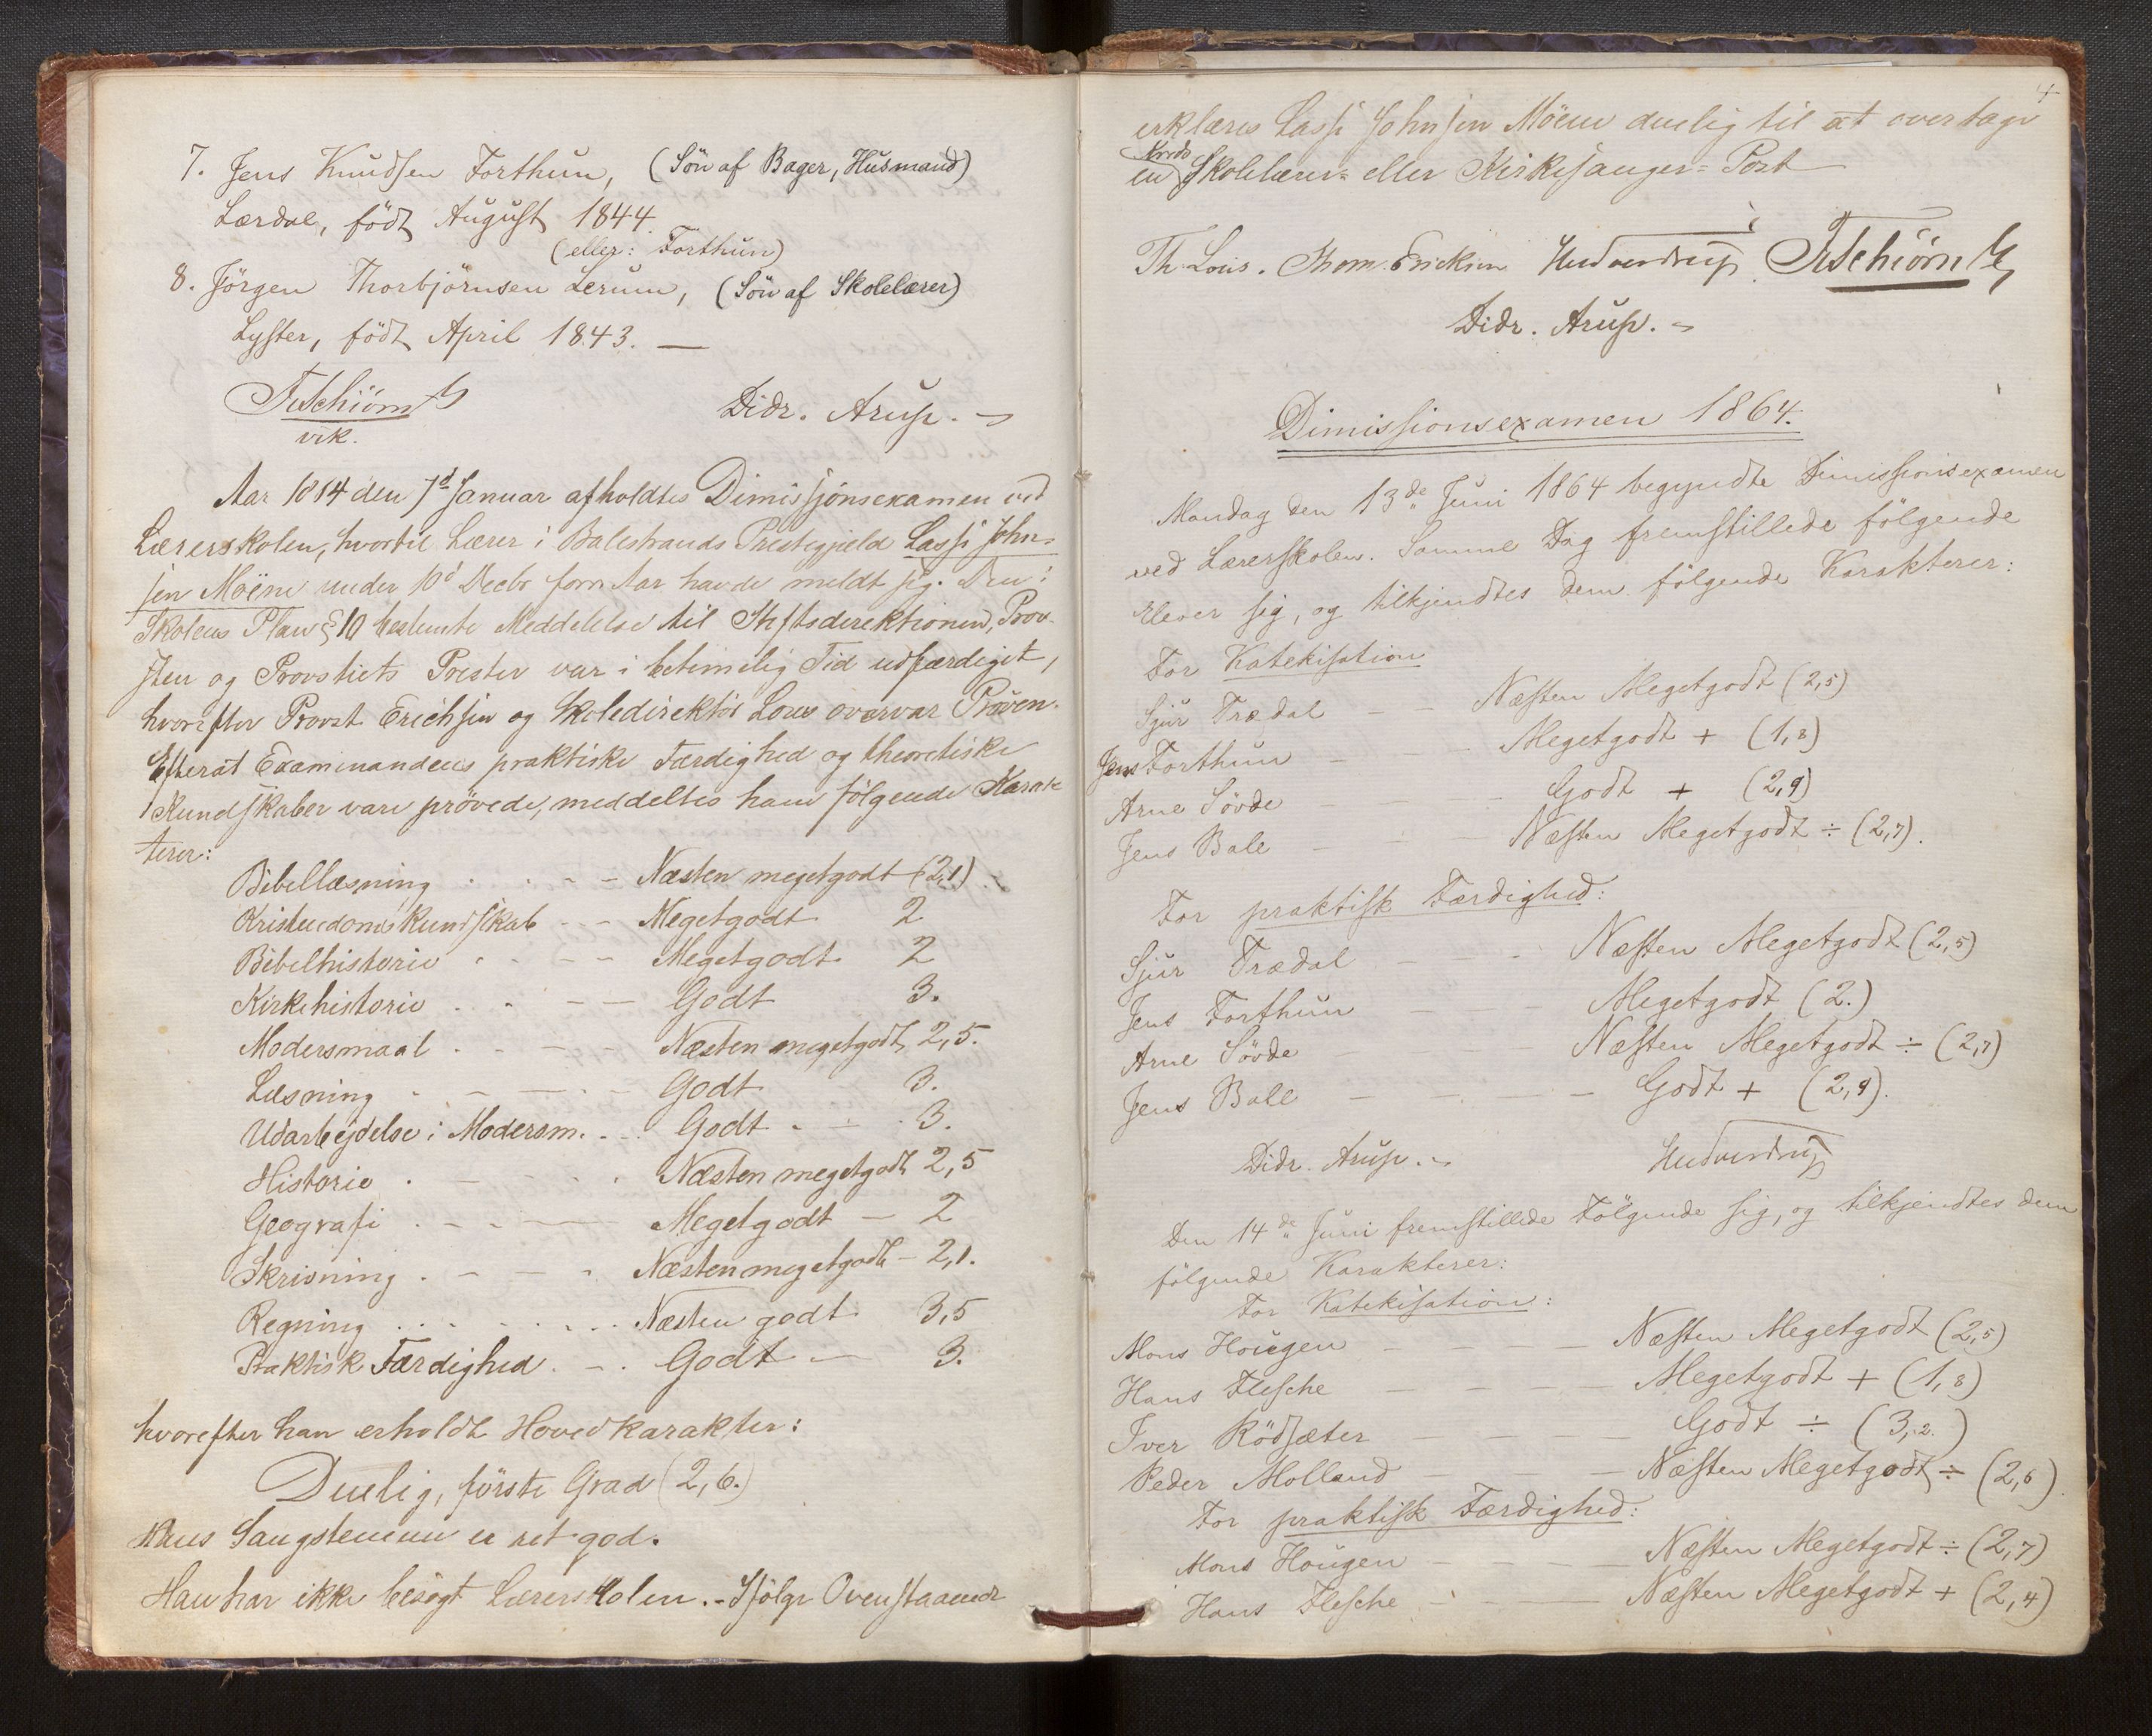 7. Jens Knudsen Forthun, (Sön af Bager, Husmand)
Lærdal, födt August 1844.
(eller: Forthun)
8. Jörgen Thorbjörnsen Lerum, (Sön af Skolelærer)
Lyster, födt April 1843. —
Didr. Arup.
Aar 1864 den 7d Januar afholdtes Dimissjonsexamen ved
Lærerskolen, hvortil Lærer i Balestrands Prestegjeld Lassi John-
sen Möene under 10d Decbr forr. Aar havde meldt sig. Den i
Skolens Plan § 10 bestemte Meddelelse til Stiftsdirektionen, Prov-
sten og Provstiets Prester var i betimelig Tid udfærdiget,
hvorefter Provst Erichsen og Skoledirektör Lous overvar Pröven.
Efterat Examinandens praktiske Færdighed og theoretiske
Kundskaber vare prövede, meddeltes ham fölgende Karak-
terer:
Bibellæsning - - - - Næsten megetgodt (2,1)
Kristendomskundskab - - - Megetgodt 2
Bibelhistorie - - - - Megetgodt 2
Kirkehistorie - - - - Godt 3.
Modersmaal - - - - Næsten megetgodt 2,5.
Læsning - - - - Godt 3.
Udarbejdelse i Modersm. - - Godt - - 3.
Historie - - - - Næsten megetgodt 2,5
Geografi - - - - Megetgodt - 2
Skrivning - - - - Næsten megetgodt - 2,1.
Regning - - - - Næsten godt 3,5
Praktisk Færdighed - - Godt - 3.
hvorefter han erholdt Hovedkarakter:
Duelig, förste Grad (2,6.)
Hans Sangstemme er ret god.
Han har ikke besögt Lærerskolen. - Ifölge Ovenstaaende
4
erklæres Lassi Johnsen Möene duelig til at overtage
en Skolelærer- eller Kirkesanger-Post
Th. Lous. Thom. Erichsen
Didr. Arup.
Dimissionsexamen 1864.
Mandag den 13de Juni 1864 begyndte Dimissionsexamen
ved Lærerskolen. Samme Dag fremstillede fölgende
Elever sig, og tilkjendtes dem fölgende Karakterer:
For Katekisation
Sjur Trædal - - Næsten Megetgodt (2,5)
Jens Forthun - - Megetgodt + (1,8)
Arne Sövde - - Godt + (2,9)
Jens Bale - - - Næsten Megetgodt ÷ (2,7).
For praktisk Færdighed:
Sjur Trædal - - - Næsten Megetgodt (2,5)
Jens Forthun - - - Megetgodt (2.)
Arne Sövde - - - Næsten Megetgodt ÷ (2,7)
Jens Bale - - - - Godt + (2,9).
Didr. Arup.
Den 14de Juni fremstillede Fölgende sig, og tilkjendtes dem
fölgende Karakterer:
For Katekisation:
Mons Hougen - - - - Næsten Megetgodt (2,5)
Hans Flesche - - - - Megetgodt + (1,8)
Iver Rödsæter - - - - Godt ÷ (3,2.)
Peder Molland - - - Næsten Megetgodt ÷ (2,6).
For praktisk Færdighed:
Mons Hougen - - - - Næsten Megetgodt ÷ (2,7)
Hans Flesche - - - - Næsten Megetgodt + (2,4)